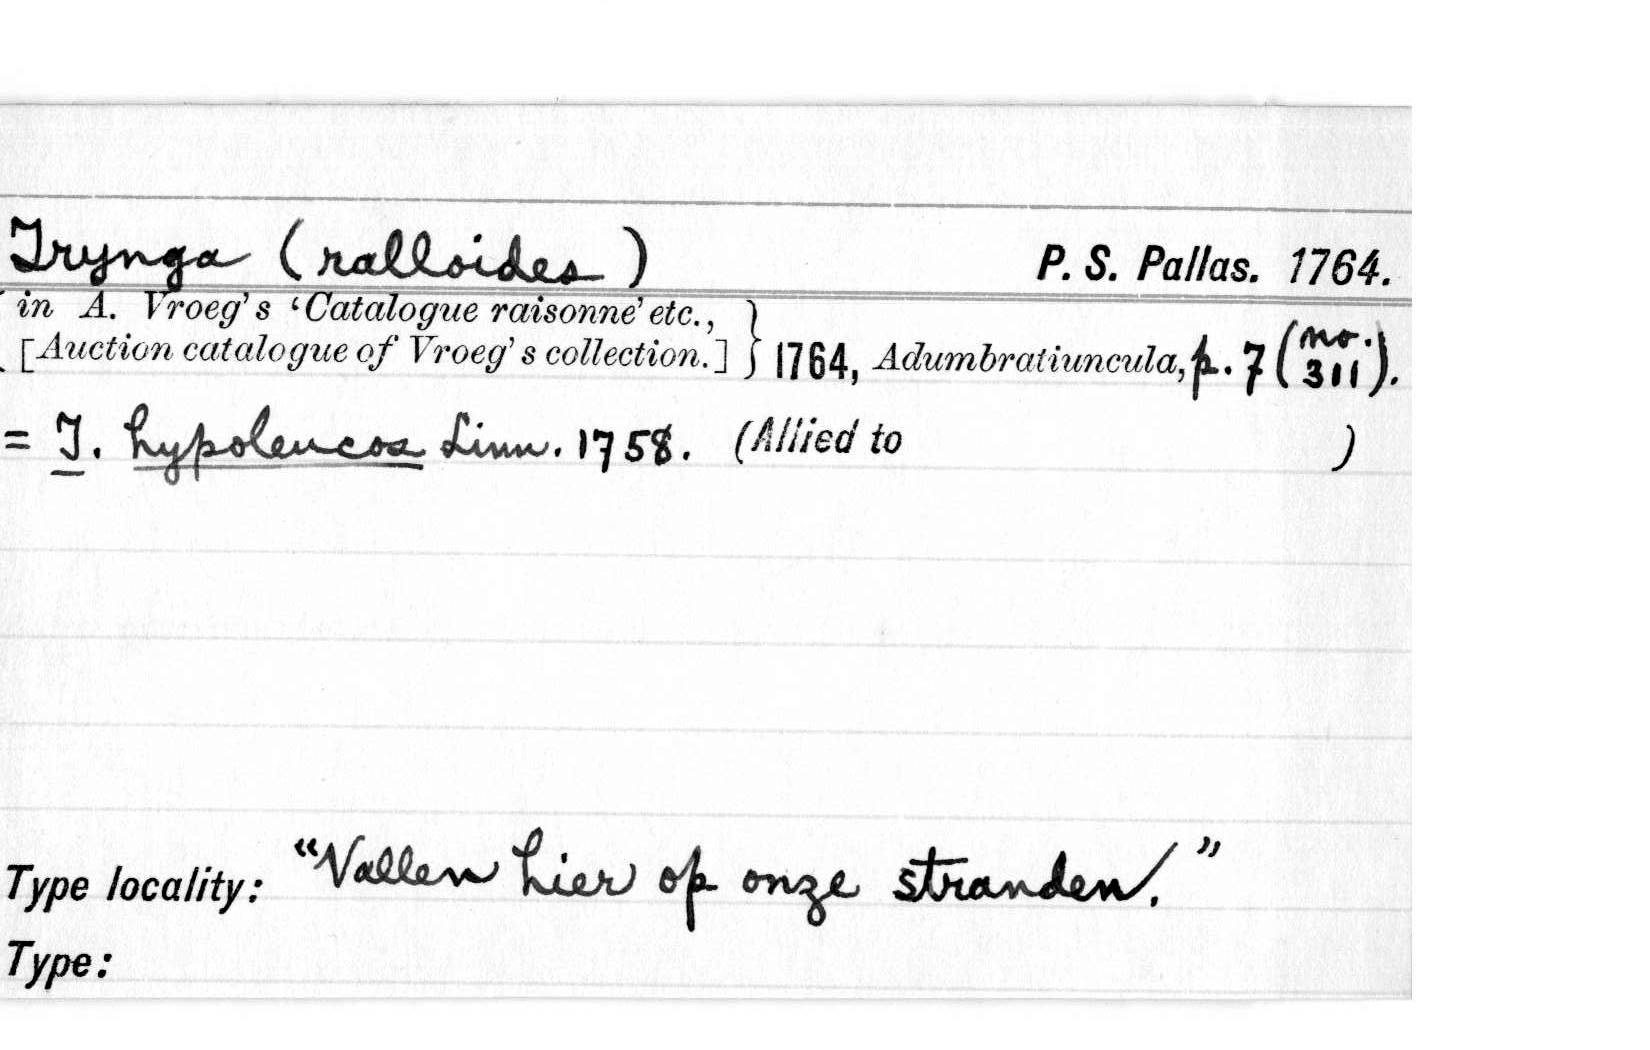 Trynga (ralloides) P. S. Pallas. 1764.
in A. Vroeg's 'Catalogue raisonné' etc.,
[Auction catalogue of Vroeg's collection.] } 1764, Adumbratiuncula, p. 7 (no. 311).
= T. hypoleucos Linn. 1758. (Allied to )
Type locality: "Vallen hier op onze stranden."
Type: